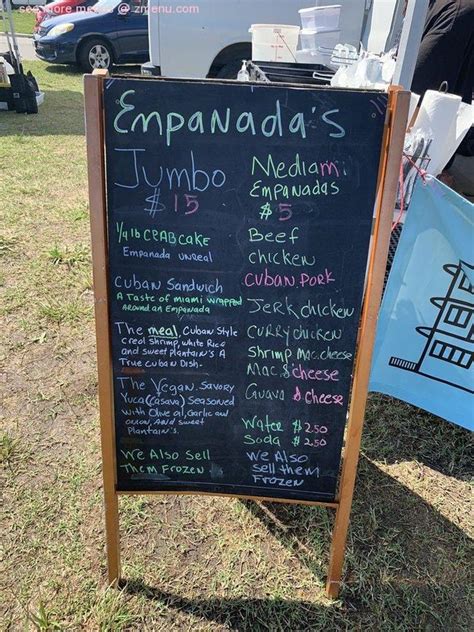 see more menus @ zmenu.com
Empanada's
Jumbo
$15
1/4 lb CRABCAKE
Empanada unreal
Cuban Sandwich
A Taste of miami wrapped
Around an Empanada
The meal, Cuban Style
creol shrimp, white Rice
and sweet plantain's A
True Cuban Dish.
The Vegan, Savory
Yuca (Casava) Seasoned
with Olive oil, Garlic and
onion, And sweet
Plantain's.
We Also Sell
Them Frozen
Mediami
Empanadas
$5
Beef
chicken
Cuban Pork
Jerk chicken
Curry chicken
Shrimp Mac & cheese
Mac & cheese
Guava & cheese
Water $2.50
Soda $2.50
We Also
Sell them
Frozen